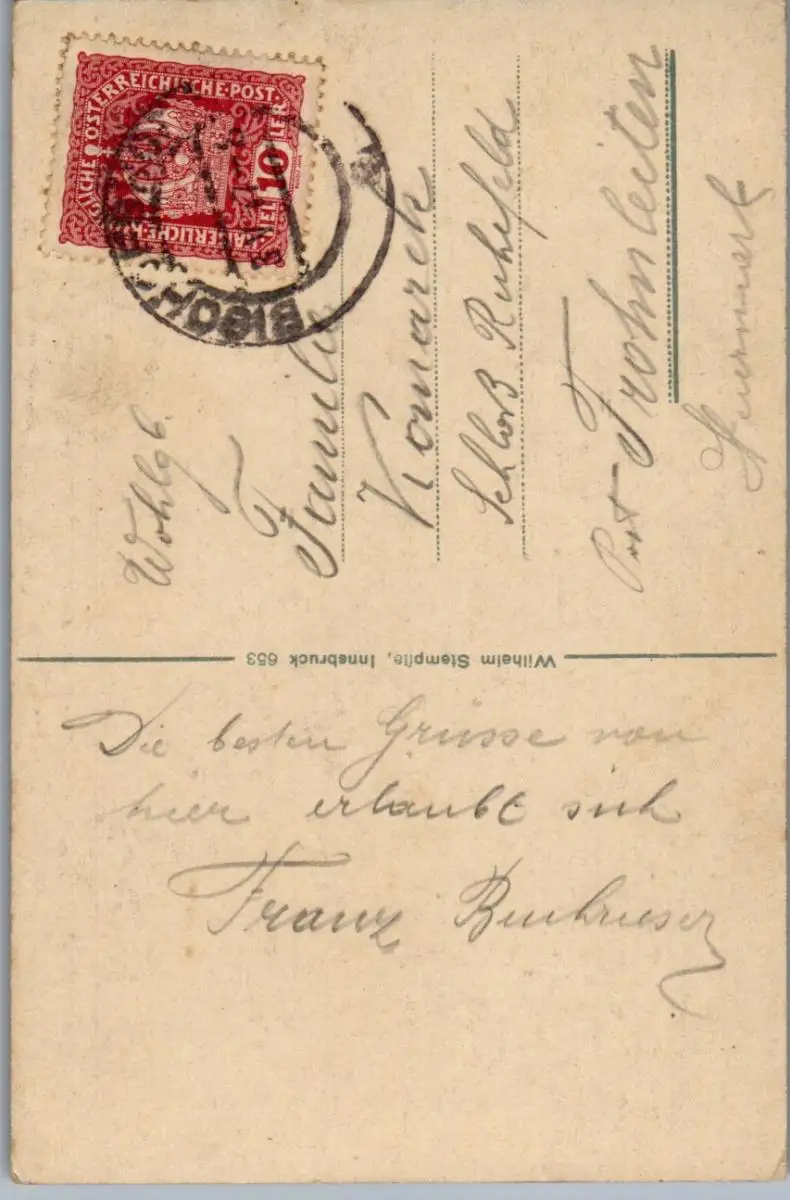 KAISERLICHE KÖNIGLICHE ÖSTERREICHISCHE POST
10
HELLER
BISCH
Wohlgb.
Familie
Komarek
Schloß Ruhefeld
Post Frohnleiten
Steiermark
Wilhelm Stempfle, Innsbruck 653
Die besten Grüsse von
hier erlaubt sich
Franz